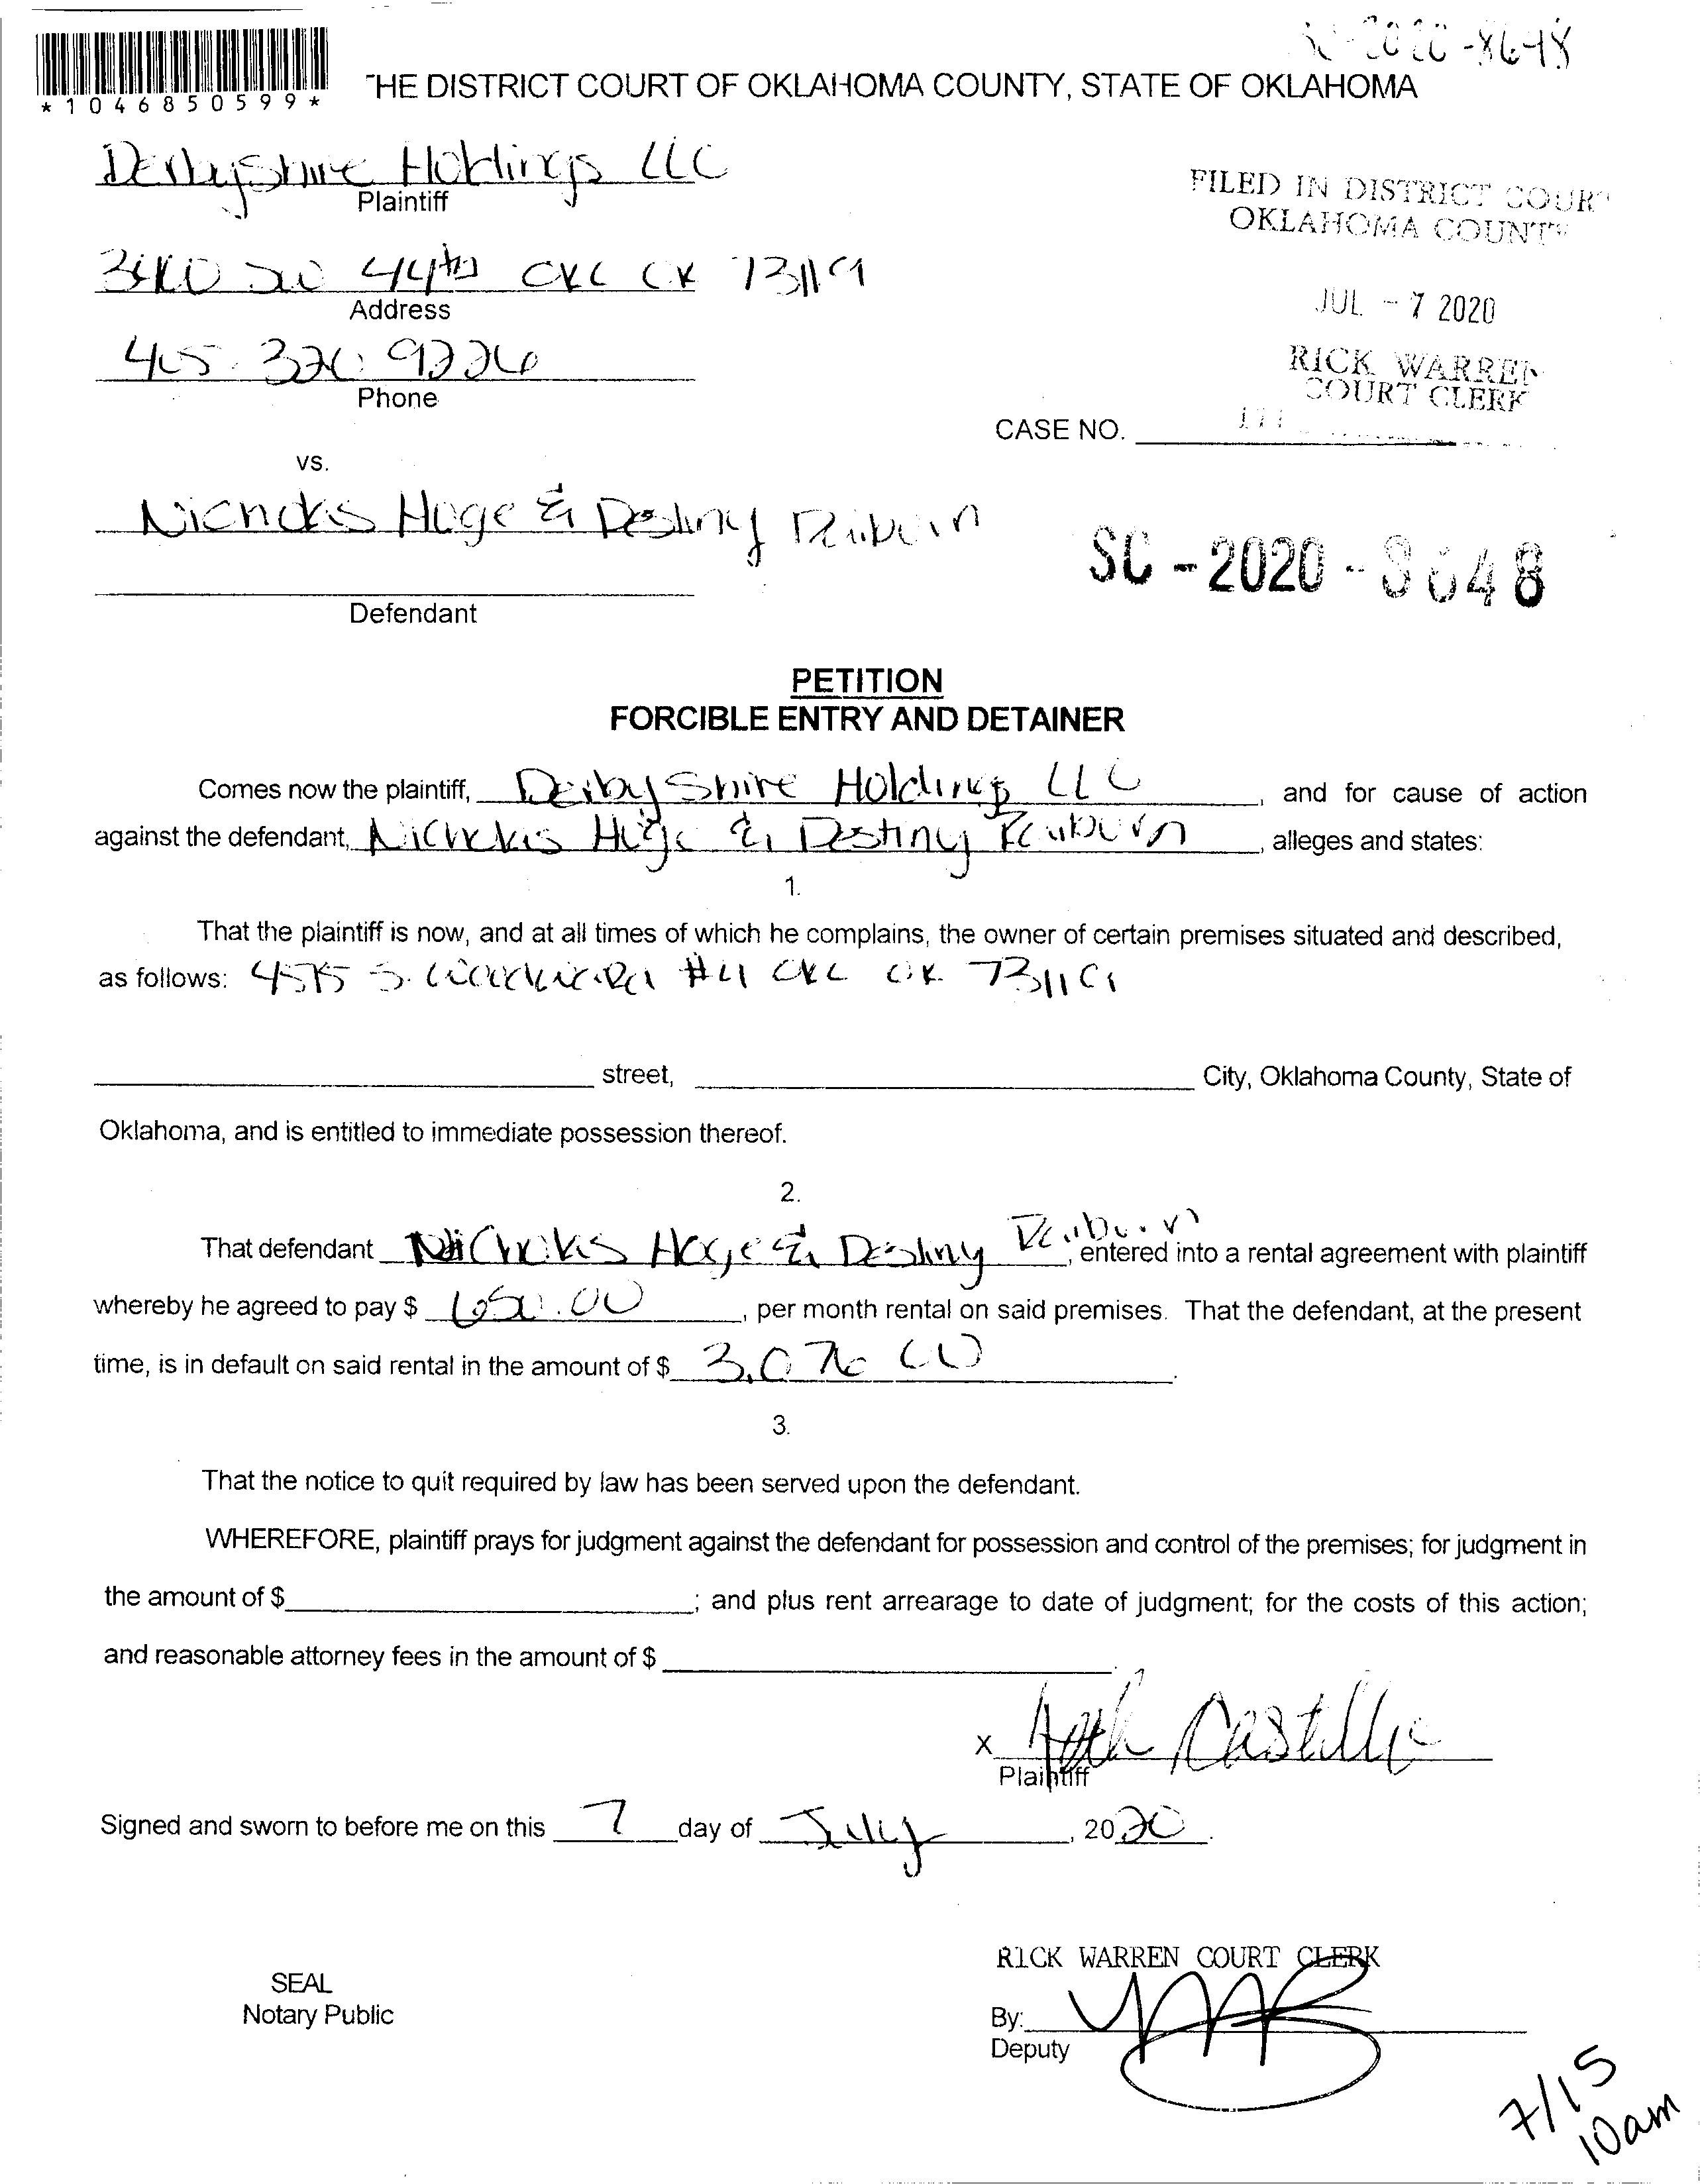 SC-2020-8648
*1046850599*
THE DISTRICT COURT OF OKLAHOMA COUNTY, STATE OF OKLAHOMA
Derbyshire Holdings LLC
Plaintiff
FILED IN DISTRICT COURT
OKLAHOMA COUNTY
SW 44th OKC OK 73119
Address
JUL - 7 2020
Phone
RICK WARREN
COURT CLERK
CASE NO.
vs.
Nicholas Hoge & Destiny
SC - 2020 - 8648
Defendant
PETITION
FORCIBLE ENTRY AND DETAINER
Comes now the plaintiff, Derbyshire Holdings LLC, and for cause of action
against the defendant, Nicholas Hoge & Destiny, alleges and states:
1.
That the plaintiff is now, and at all times of which he complains, the owner of certain premises situated and described,
as follows: 4575 S. #4 OKC OK 73119
street, City, Oklahoma County, State of
Oklahoma, and is entitled to immediate possession thereof.
2.
That defendant Nicholas Hoge & Destiny, entered into a rental agreement with plaintiff
whereby he agreed to pay $ 650.00, per month rental on said premises. That the defendant, at the present
time, is in default on said rental in the amount of $ 3,076 00.
3.
That the notice to quit required by law has been served upon the defendant.
WHEREFORE, plaintiff prays for judgment against the defendant for possession and control of the premises; for judgment in
the amount of $ ; and plus rent arrearage to date of judgment; for the costs of this action;
and reasonable attorney fees in the amount of $ .
x Castillo
Plaintiff
Signed and sworn to before me on this 7 day of July, 2020.
RICK WARREN COURT CLERK
SEAL
Notary Public
By:
Deputy
7/15
10am